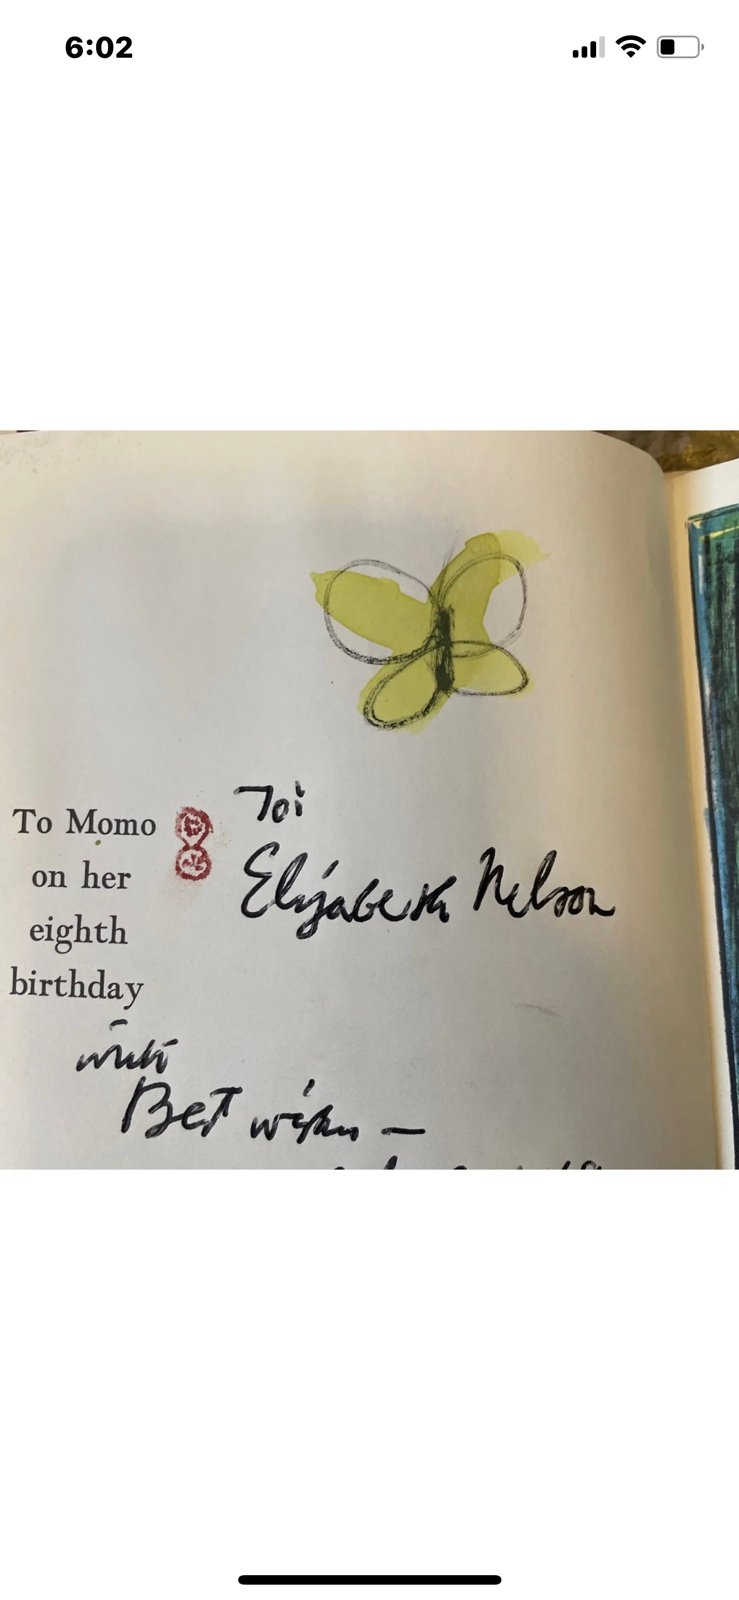 6:02
To Momo
on her
eighth
birthday
To:
Elizabeth Nelson
with
Best wishes —